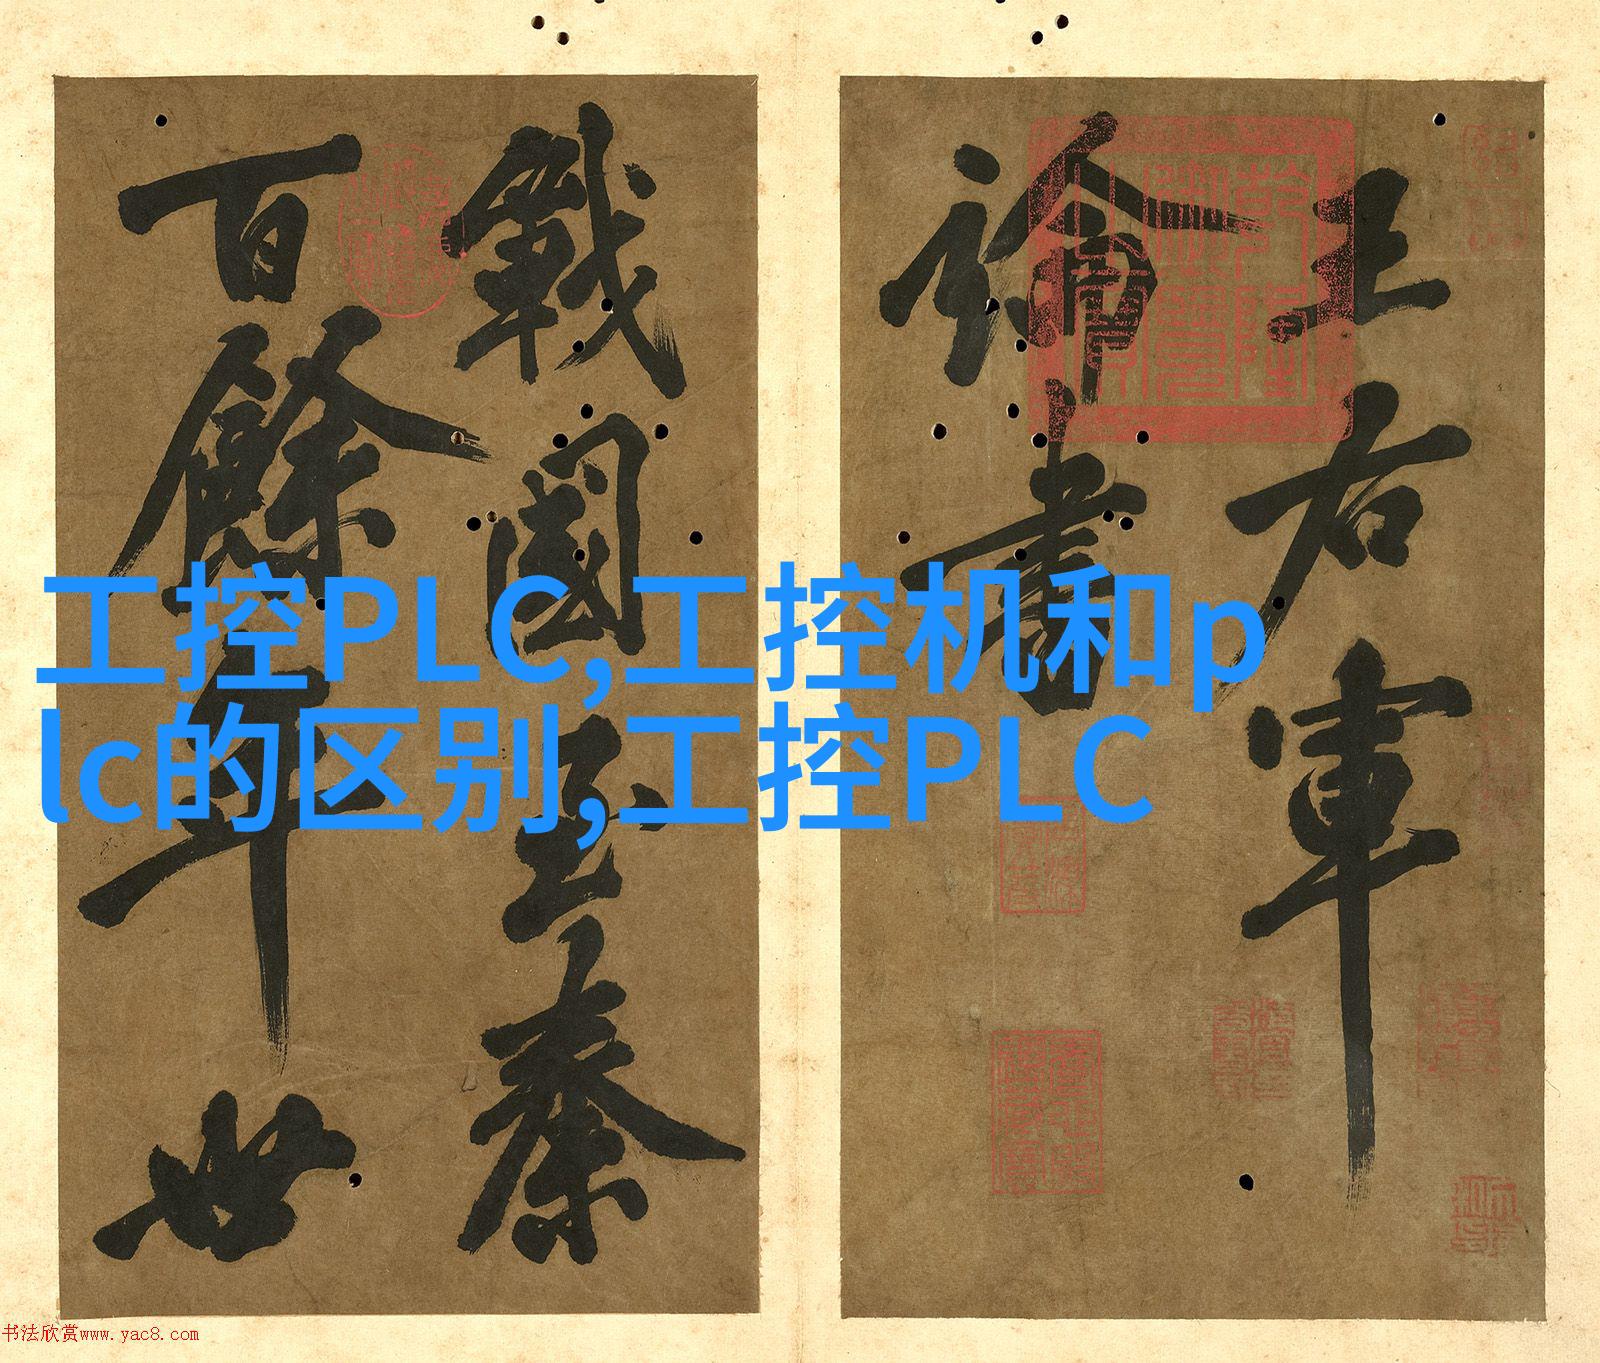 王右軍
論書
戰國至秦
百餘年世
乾隆
御覽
之寶
工控PLC,工控机和p
lc的区别,工控PLC
书法欣赏www.yac8.com